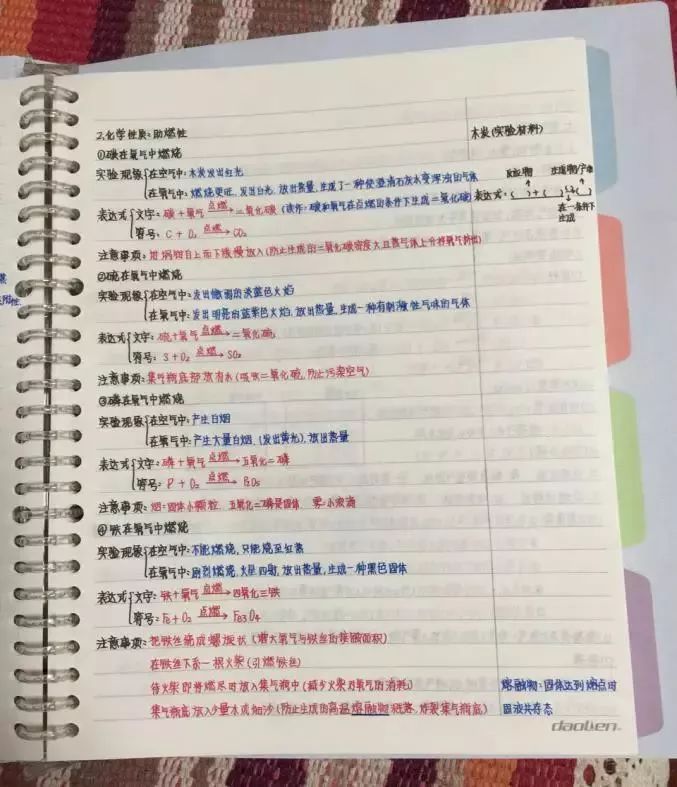 2.化学性质:助燃性
木炭(实验材料)
①碳在氧气中燃烧
实验现象{在空气中:木炭发出红光
在氧气中:燃烧更旺,发出白光,放出热量,生成了一种使澄清石灰水变浑浊的气体
反应物 生成物/产物
表达式:( )+( )→( )
在一条件下
生成
表达式{文字:碳+氧气 点燃→ 二氧化碳(读作:碳和氧气在点燃的条件下生成二氧化碳)
符号:C + O₂ 点燃→ CO₂
注意事项:坩埚钳自上而下缓慢放入(防止生成的二氧化碳密度大且热气体上升将氧气挤出)
②硫在氧气中燃烧
实验现象{在空气中:发出微弱的淡蓝色火焰
在氧气中:发出明亮的蓝紫色火焰,放出热量,生成一种有刺激性气味的气体
表达式{文字:硫+氧气 点燃→ 二氧化硫
符号:S+O₂ 点燃→ SO₂
注意事项:集气瓶底部放有水(吸收二氧化硫,防止污染空气)
③磷在氧气中燃烧
实验现象{在空气中:产生白烟
在氧气中:产生大量白烟,(发出黄光),放出热量
表达式{文字:磷+氧气 点燃→ 五氧化二磷
符号:P + O₂ 点燃→ P₂O₅
注意事项:烟:固体小颗粒,五氧化二磷是固体 雾:小液滴
④铁在氧气中燃烧
实验现象{在空气中:不能燃烧,只能烧至红热
在氧气中:剧烈燃烧,火星四射,放出热量,生成一种黑色固体
表达式{文字:铁+氧气 点燃→ 四氧化三铁
符号:Fe+O₂ 点燃→ Fe₃O₄
注意事项:把铁丝绕成螺旋状(增大氧气与铁丝的接触面积)
在铁丝下系一根火柴(引燃铁丝)
待火柴即将燃尽时放入集气瓶中(减少火柴对氧气的消耗)
熔融物:固体达到熔点时
集气瓶底放入少量水或细沙(防止生成的高温熔融物溅落,炸裂集气瓶底)
固液共存态
daolen